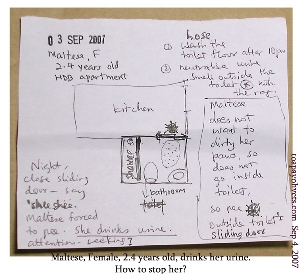 03 SEP 2007
Maltese, F
2.4 years old
HDB apartment
hose
① Wash the
toilet floor after 10pm
② neutralise urine
smell outside the
toilet
the rug
kitchen
shower
bathroom
toilet
Maltese
does not
want to
dirty her
paws, so
does not
go inside
toilet,
so pee
outside toilet's
sliding door
Night,
close sliding
door - say
"shee shee.
Maltese forced
to pee. She drinks urine.
attention seeking?
toapayohvets.com Sep 4, 2007
Maltese, Female, 2.4 years old, drinks her urine.
How to stop her?